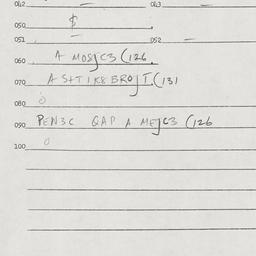 042 — 043 —
050 $
051 — 052 —
060 A MOSJC3 (126.
070 A S+T1K8 BROJT.(131
080
090 PEN3C QAP A MEJC3 (126
100